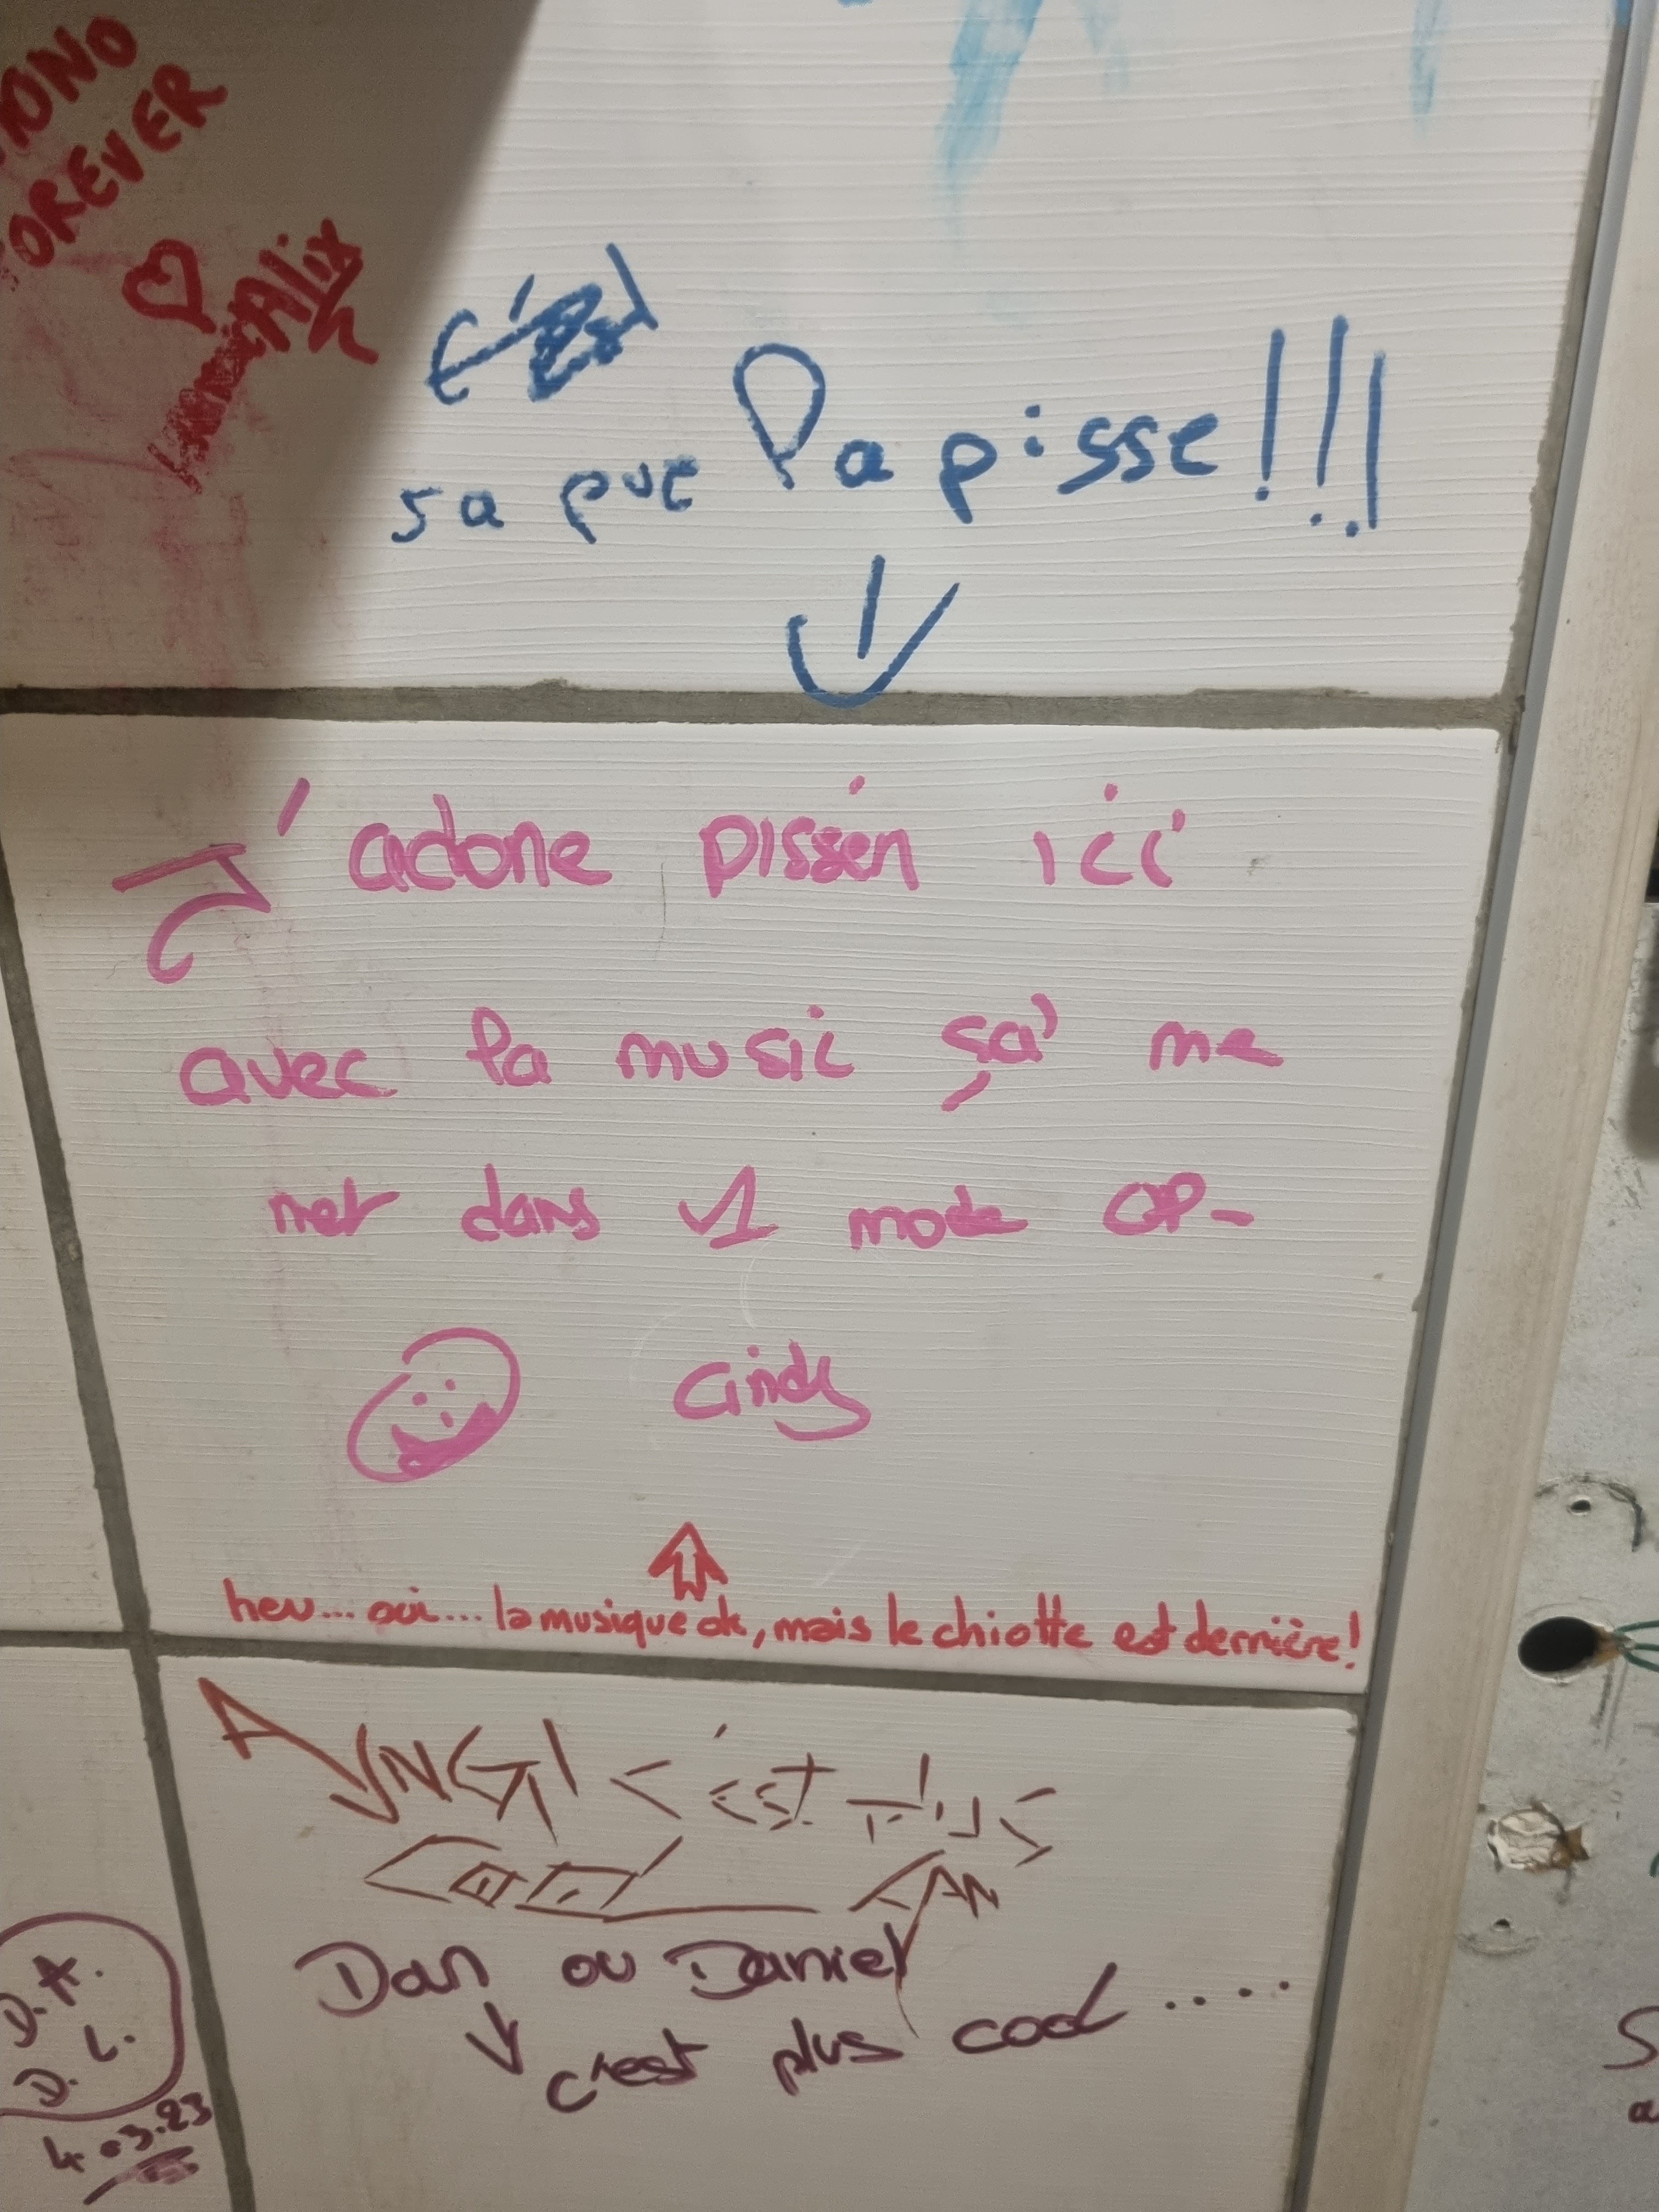 FOREVER
Alix
sa pue la pisse!!!
J'adore pisser ici
avec la music ça me
met dans 1 mode OP-
Cindy
heu... oui... la musique ok, mais le chiotte est derrière!
ANGI c'est plus
cool
Dan ou Daniel
c'est plus cool.....
D.A.
D.L.
4.03.23